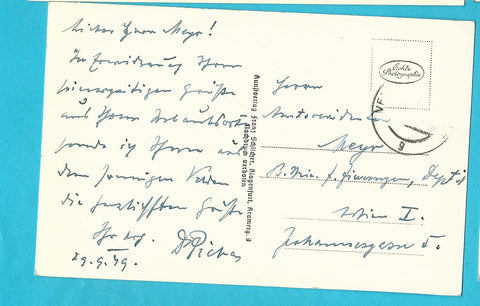 Lieber Herr Meyr!
In Erwiderung Ihrer
seinerzeitigen Grüße
aus Ihrem Urlaubsort
sende ich Ihnen aus
dem sonnigen Velden
die herzlichsten Grüße
Ihr erg.
29.9.49.
Kunstverlag Franz Schilcher, Klagenfurt, Kramerg. 9
Nachdruck verboten
Echte
Photographie
VE
9
Herrn
Meyr
B. Min. f. Finanzen, Dept. 18
Wien I.
Johannesgasse 5.